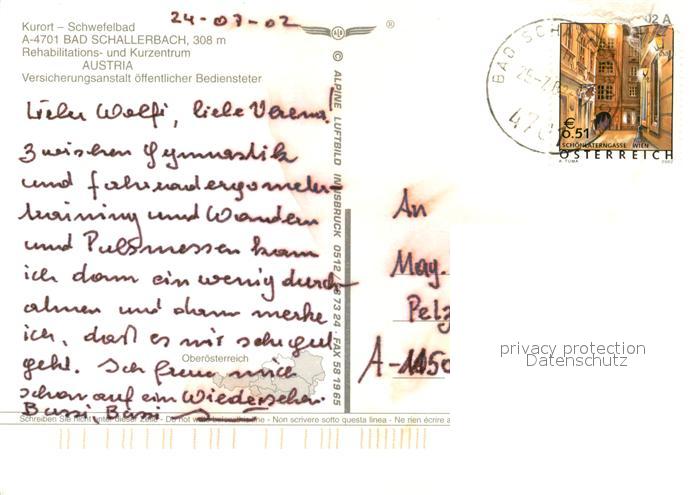 24-07-02
Kurort – Schwefelbad
A-4701 BAD SCHALLERBACH, 308 m
Rehabilitations- und Kurzentrum
AUSTRIA
Versicherungsanstalt öffentlicher Bediensteter
Lieber Wolfi, liebe Verena!
Zwischen Gymnastik
und Fahrradergometer-
training und Wandern
und Pulsmessen kann
ich dann ein wenig durch-
atmen und dann merke
ich, daß es mir sehr gut
geht. Ich freue mich
schon auf ein Wiedersehen.
Bussi, Bussi
Oberösterreich
Schreiben Sie nicht unter dieser Zeile - Do not write below this line - Non scrivere sotto questa linea - Ne rien écrire a
® 
© ALPINE LUFTBILD INNSBRUCK 0512 / 58 73 24 · FAX 58 19 65
BAD SCHA
25-7.
470
02 A
€
0.51
SCHÖNLATERNGASSE WIEN
ÖSTERREICH
A. TUMA 2002
An
Mag.
Pelz
A-1150
privacy protection
Datenschutz